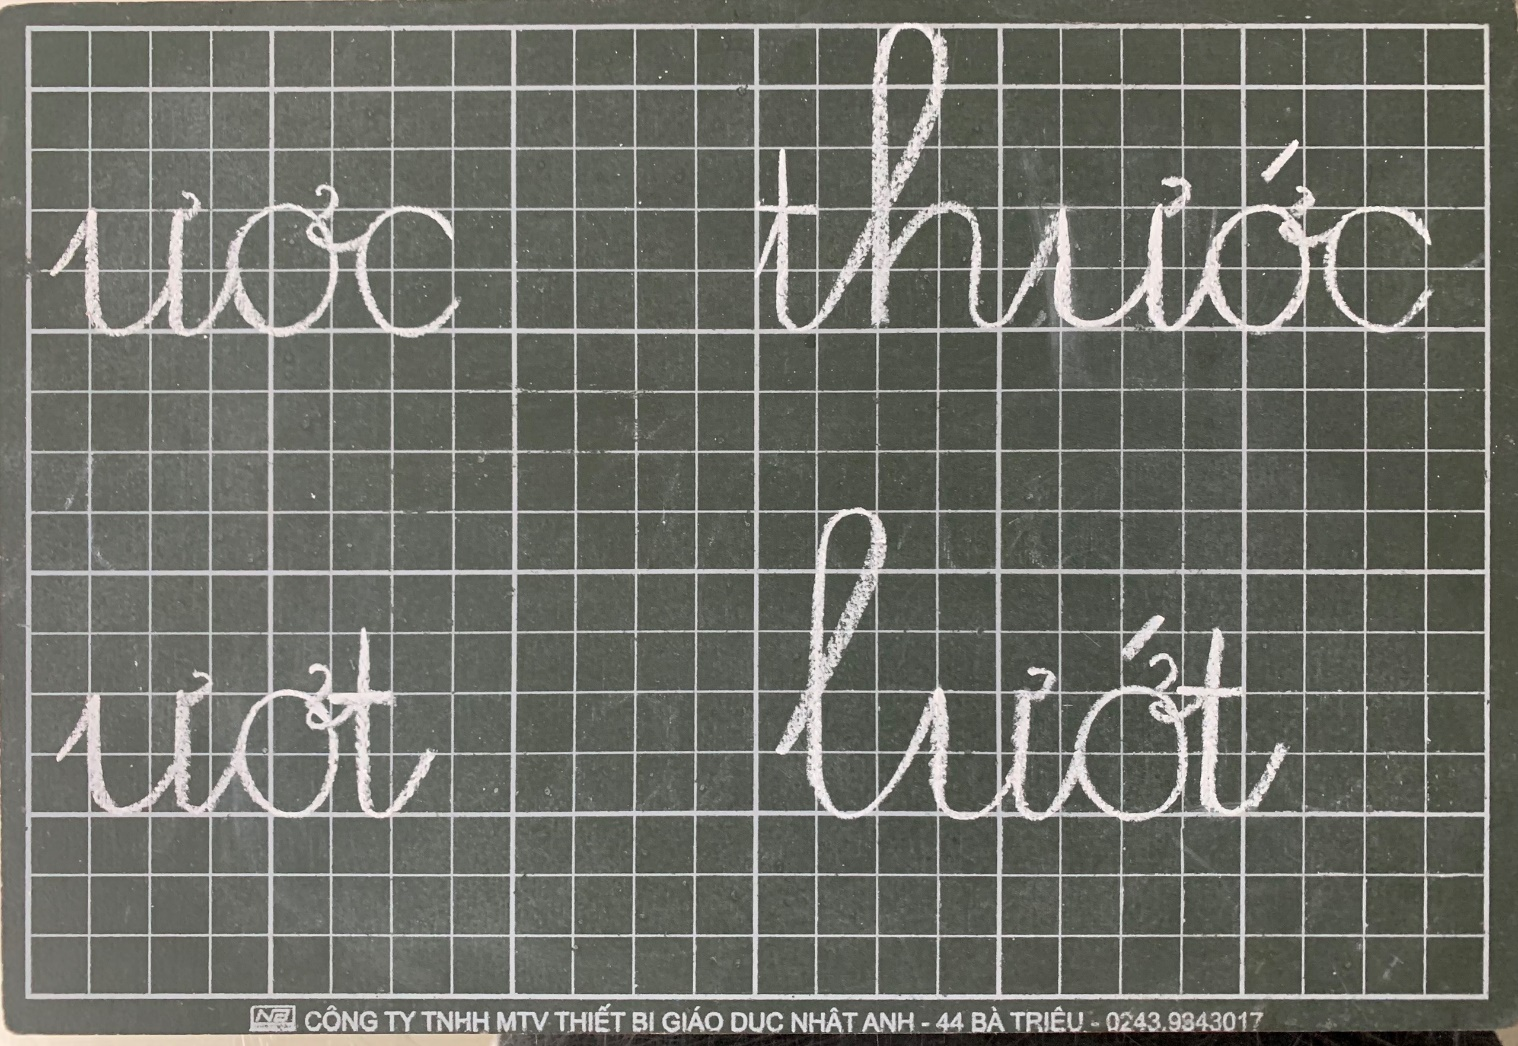 ươc thước
ươt lướt
NA CÔNG TY TNHH MTV THIẾT BỊ GIÁO DỤC NHẬT ANH - 44 BÀ TRIỆU - 0243.9343017